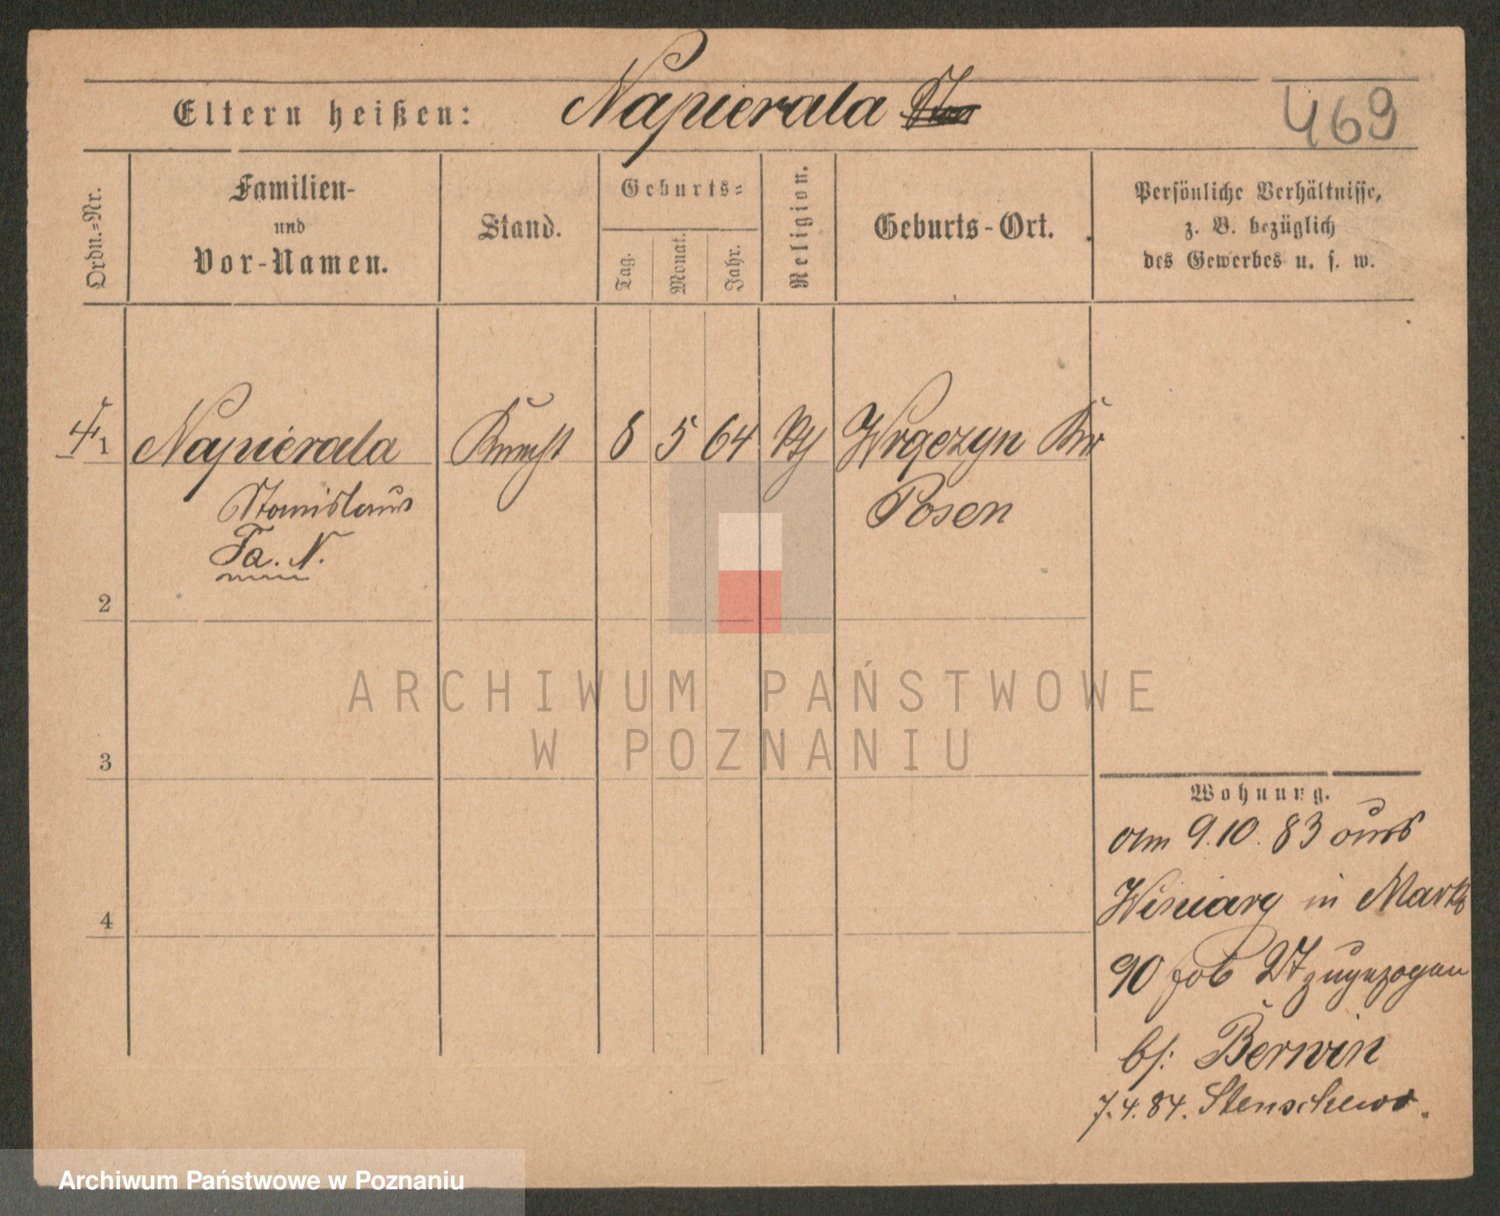 Eltern heißen: Napierala
469
Ordn.-Nr.
Familien-
und
Vor-Namen.
Stand.
Geburts-
Tag.
Monat.
Jahr.
Religion.
Geburts-Ort.
Persönliche Verhältnisse,
z. B. bezüglich
des Gewerbes u. s. w.
1 Napierala Knecht 8 5 64 Wrgezyn Krs
Stanislaus Posen
Fa. N.
2
3
4
ARCHIWUM PAŃSTWOWE
W POZNANIU
Wohnung.
am 9.10.83 aus
Winiary in Markt
90 zugezogen
bs: Berwin
7.4.84. Stenschewo.
Archiwum Państwowe w Poznaniu